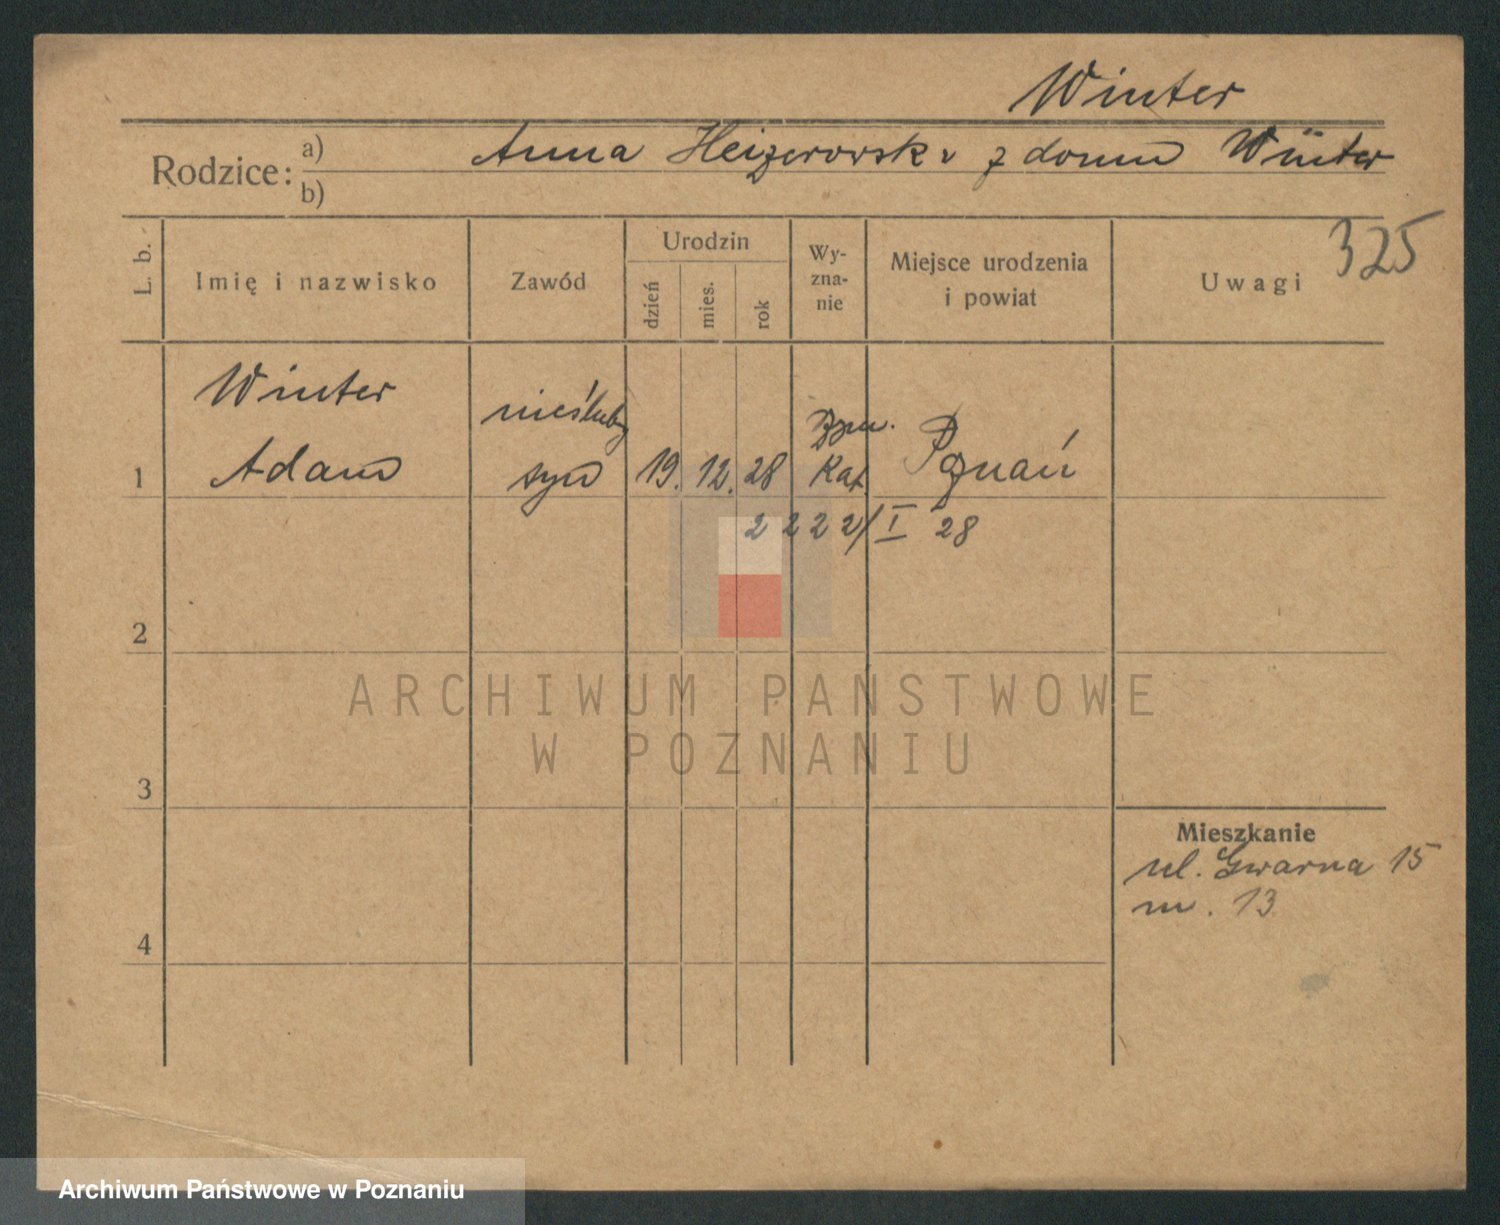 Winter
Rodzice: a) Anna Heizerowska z domu Winter
b)
325
L. b.
Imię i nazwisko
Zawód
Urodzin
dzień
mies.
rok
Wy-
zna-
nie
Miejsce urodzenia
i powiat
Uwagi
Winter nieślubny Rzym.
1 Adam syn 19. 12. 28 Kat. Poznań
2222/I 28
2
ARCHIWUM PAŃSTWOWE
W POZNANIU
3
Mieszkanie
ul. Gwarna 15
m. 13
4
Archiwum Państwowe w Poznaniu